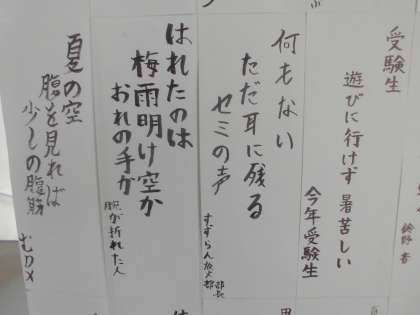 受験生
遊びに行けず 暑苦しい
今年受験生
何もない
ただ耳に残る
セミの声
すずらん放送部 部長
はれたのは
梅雨明け空か
おれの手が
腕が折れた人
夏の空
腹を見れば
少しの腹筋